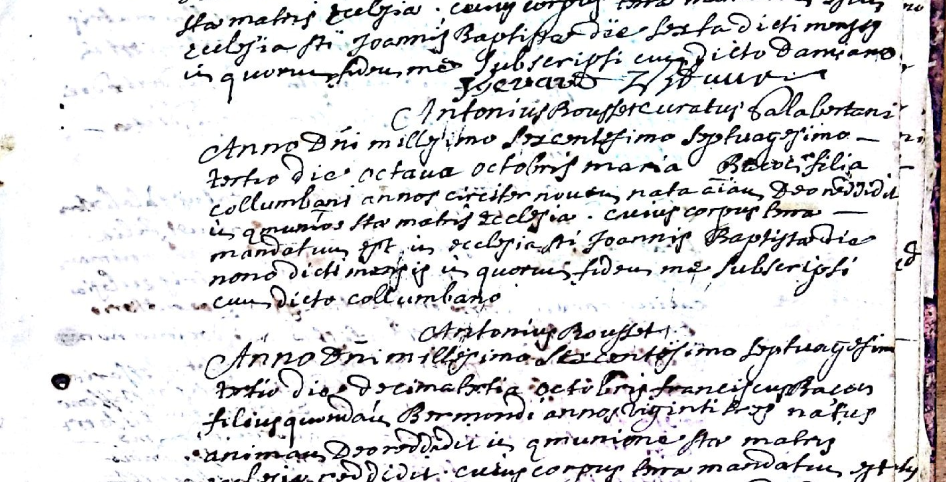 stæ matris Ecclesia . cuius corpus terræ
Ecclesia sti Joannis Baptistæ die sexta dicti mensis
in quorum fidem me subscripsi cum dicto Damiano
Antonius Rousset curatus Salabertani
Anno Dni millesimo sexcentesimo septuagesimo
tertio die octava octobris maria Bacoü filia
collumbani annos circiter novem nata aïam Deo reddidit
in qmunione stæ matris Ecclesia . cuius corpus terræ
mandatum est in ecclesia sti Joannis Baptistæ die
nona dicti mensis in quorum fidem me subscripsi
cum dicto collumbano
Antonius Rousset
Anno Dni millesimo sexcentesimo septuagesimo
tertio die decima tertia octobris franciscus Bacou
filius quondam Bermondi annos viginti tres natus
animam Deo reddidit in qmunione stæ matris
ecclesia reddidit cuius corpus terræ mandatum est